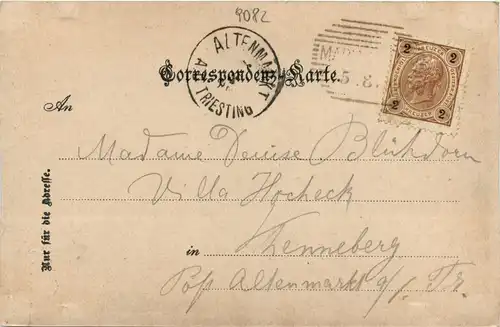 9082
ALTENMARKT
A.D. TRIESTING
5. 8.
2 2
2 2
Correspondenz-Karte.
An
Madame Denise Blühdorn
Villa Hocheck
in Fenneberg
Post Altenmarkt a/. Tr.
Nur für die Adresse.